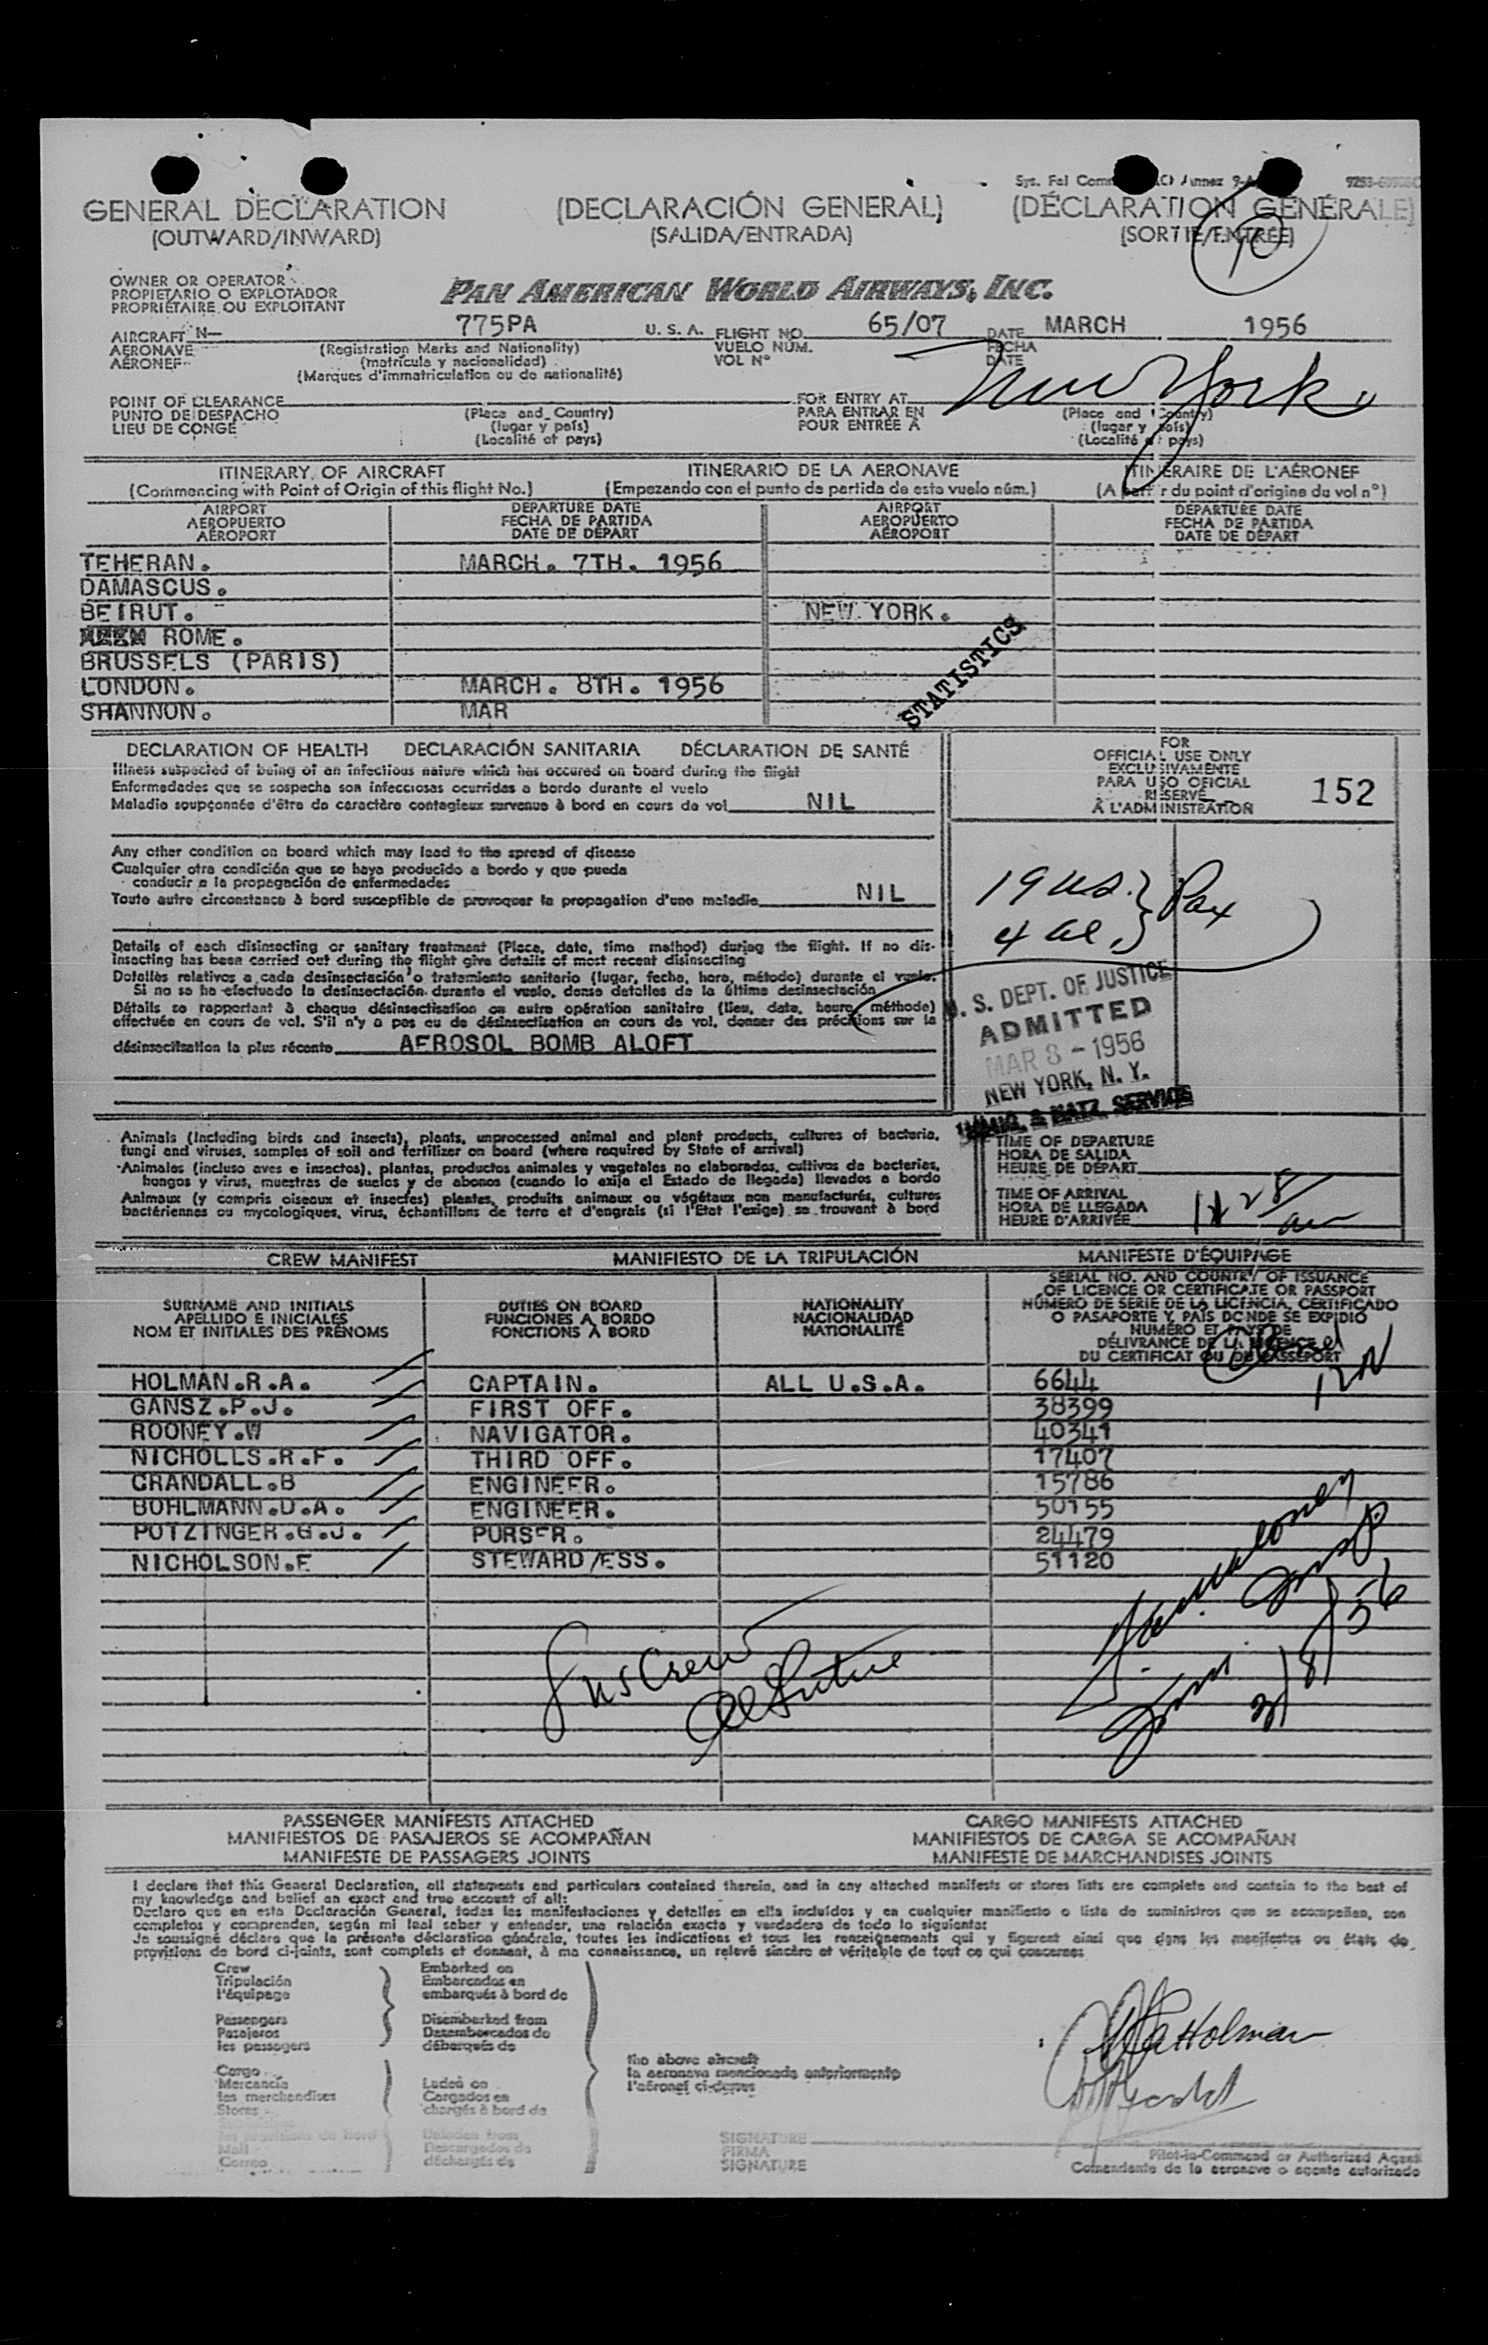 GENERAL DECLARATION (DECLARACIÓN GENERAL) (DÉCLARATION GÉNÉRALE)
(OUTWARD/INWARD) (SALIDA/ENTRADA) (SORTIE/ENTRÉE)
OWNER OR OPERATOR
PROPIETARIO O EXPLOTADOR
PROPRIÉTAIRE OU EXPLOITANT
PAN AMERICAN WORLD AIRWAYS, INC.
AIRCRAFT N— 775PA U. S. A. FLIGHT NO. 65/07 DATE MARCH 1956
AERONAVE (Registration Marks and Nationality) VUELO NÚM. FECHA
AÉRONEF (matrícula y nacionalidad) VOL Nº DATE
(Marques d'immatriculation ou de nationalité)
New York
POINT OF CLEARANCE FOR ENTRY AT
PUNTO DE DESPACHO (Place and Country) PARA ENTRAR EN (Place and Country)
LIEU DE CONGÉ (lugar y país) POUR ENTRÉE À (lugar y país)
(Localité et pays) (Localité et pays)
ITINERARY OF AIRCRAFT ITINERARIO DE LA AERONAVE ITINÉRAIRE DE L'AÉRONEF
(Commencing with Point of Origin of this flight No.) (Empezando con el punto de partida de este vuelo núm.) (A partir du point d'origine du vol nº)
AIRPORT DEPARTURE DATE AIRPORT DEPARTURE DATE
AEROPUERTO FECHA DE PARTIDA AEROPUERTO FECHA DE PARTIDA
AÉROPORT DATE DE DÉPART AÉROPORT DATE DE DÉPART
TEHERAN. MARCH. 7TH. 1956
DAMASCUS.
BEIRUT. NEW YORK.
ROME.
BRUSSELS (PARIS)
LONDON. MARCH. 8TH. 1956
SHANNON. MAR
STATISTICS
DECLARATION OF HEALTH DECLARACIÓN SANITARIA DÉCLARATION DE SANTÉ
Illness suspected of being of an infectious nature which has occured on board during the flight
Enfermedades que se sospecha son infecciosas ocurridas a bordo durante el vuelo
Maladie soupçonnée d'être de caractère contagieux survenue à bord en cours de vol NIL
FOR
OFFICIAL USE ONLY
EXCLUSIVAMENTE
PARA USO OFICIAL
RÉSERVÉ
À L'ADMINISTRATION
152
Any other condition on board which may lead to the spread of disease
Cualquier otra condición que se haya producido a bordo y que pueda
conducir a la propagación de enfermedades
Toute autre circonstance à bord susceptible de provoquer la propagation d'une maladie NIL
19 US. } Pax
4 al.
Details of each disinsecting or sanitary treatment (Place, date, time method) during the flight. If no dis-
insecting has been carried out during the flight give details of most recent disinsecting
Detalles relativos a cada desinsectación o tratamiento sanitario (lugar, fecha, hora, método) durante el vuelo.
Si no se ha efectuado la desinsectación durante el vuelo, dense detalles de la última desinsectación
Détails se rapportant à chaque désinsectisation ou autre opération sanitaire (lieu, date, heure, méthode)
effectuée en cours de vol. S'il n'y a pas eu de désinsectisation en cours de vol, donner des précisions sur la
désinsectisation la plus récente AEROSOL BOMB ALOFT
U. S. DEPT. OF JUSTICE
ADMITTED
MAR 8 - 1956
NEW YORK, N. Y.
IMMIG. & NATZ. SERVICE
Animals (Including birds and insects), plants, unprocessed animal and plant products, cultures of bacteria,
fungi and viruses, samples of soil and fertilizer on board (where required by State of arrival)
Animales (incluso aves e insectos), plantas, productos animales y vegetales no elaborados, cultivos de bacterias,
hongos y virus, muestras de suelos y de abonos (cuando lo exija el Estado de llegada) llevados a bordo
Animaux (y compris oiseaux et insectes) plantes, produits animaux ou végétaux non manufacturés, cultures
bactériennes ou mycologiques, virus, échantillons de terre et d'engrais (si l'Etat l'exige) se trouvant à bord
TIME OF DEPARTURE
HORA DE SALIDA
HEURE DE DÉPART
TIME OF ARRIVAL
HORA DE LLEGADA
HEURE D'ARRIVÉE
CREW MANIFEST MANIFIESTO DE LA TRIPULACIÓN MANIFESTE D'ÉQUIPAGE
SURNAME AND INITIALS
APELLIDO E INICIALES
NOM ET INITIALES DES PRÉNOMS
DUTIES ON BOARD
FUNCIONES A BORDO
FONCTIONS À BORD
NATIONALITY
NACIONALIDAD
NATIONALITÉ
SERIAL NO. AND COUNTRY OF ISSUANCE
OF LICENCE OR CERTIFICATE OR PASSPORT
NÚMERO DE SERIE DE LA LICENCIA, CERTIFICADO
O PASAPORTE Y PAÍS DONDE SE EXPIDIÓ
NUMÉRO ET PAYS DE
DÉLIVRANCE DE LA LICENCE
DU CERTIFICAT OU DU PASSEPORT
HOLMAN.R.A. CAPTAIN. ALL U.S.A. 6644
GANSZ.P.J. FIRST OFF. 38399
ROONEY.W NAVIGATOR. 40341
NICHOLLS.R.F. THIRD OFF. 17407
CRANDALL.B ENGINEER. 15786
BOHLMANN.D.A. ENGINEER. 50155
POTZINGER.G.J. PURSER. 24479
NICHOLSON.E STEWARD/ESS. 51120
8 us Crew
3/8/56
PASSENGER MANIFESTS ATTACHED CARGO MANIFESTS ATTACHED
MANIFIESTOS DE PASAJEROS SE ACOMPAÑAN MANIFIESTOS DE CARGA SE ACOMPAÑAN
MANIFESTE DE PASSAGERS JOINTS MANIFESTE DE MARCHANDISES JOINTS
I declare that this General Declaration, all statements and particulars contained therein, and in any attached manifests or stores lists are complete and contain to the best of
my knowledge and belief an exact and true account of all:
Declaro que en esta Declaración General, todas las manifestaciones y detalles en ella incluídos y en cualquier manifiesto o lista de suministros que se acompañen, son
completos y comprenden, según mi leal saber y entender, una relación exacta y verdadera de todo lo siguiente:
Je soussigné déclare que la présente déclaration générale, toutes les indications et tous les renseignements qui y figurent ainsi que dans les manifestes ou états de
provisions de bord ci-joints, sont complets et donnent, à ma connaissance, un relevé sincère et véritable de tout ce qui concerne:
Crew Embarked on
Tripulación Embarcados en
l'équipage embarqués à bord de
Passengers Disembarked from
Pasajeros Desembarcados de
les passagers débarqués de
the above aircraft
la aeronave mencionada anteriormente
l'aéronef ci-dessus
Cargo
Mercancía Laded on
les marchandises Cargados en
Stores chargés à bord de
Mail Descargados de
Correo déchargés de
RA Holman
SIGNATURE
FIRMA
SIGNATURE
Pilot-in-Command or Authorized Agent
Comandante de la aeronave o agente autorizado